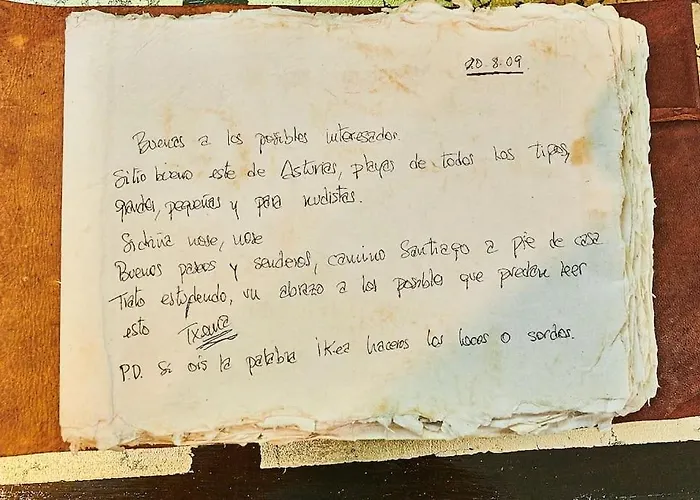 20.8.09
Buenas a los posibles interesados.
Sitio bueno este de Asturias, playas de todos los tipos,
grandes, pequeñas y para nudistas.
Sidriña nose, nose
Buenos paseos y senderos, camino Santiago a pie de casa
Trato estupendo, un abrazo a los posibles que puedan leer
esto Txema
P.D. Si oís la palabra ikea haceros los locos o sordos.